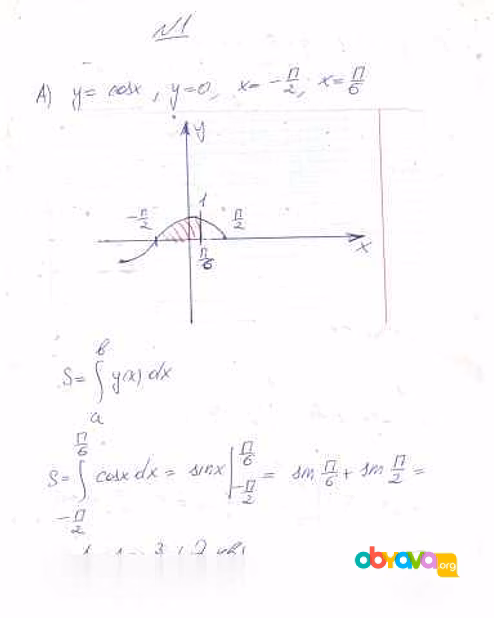 №1
А) y = cosx, y=0, x= -π/2, x= π/6
y
1
-π/2 π/2
π/6 x
в
S= ∫ y(x) dx
a
π/6
S= ∫ cosx dx = sinx | π/6 -π/2 = sin π/6 + sin π/2 =
-π/2
obyava.org